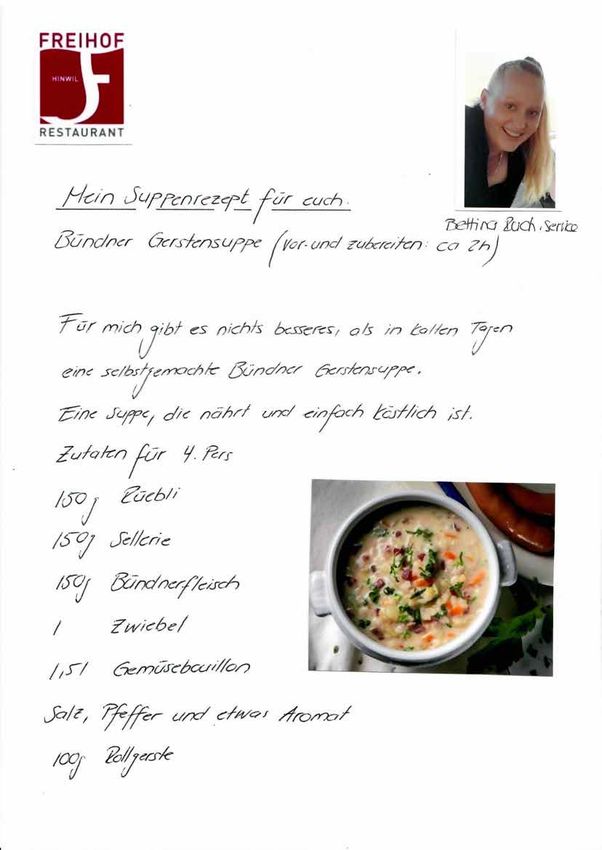 FREIHOF
HINWIL
RESTAURANT
Mein Suppenrezept für euch:
Bettina Ruch, Service
Bündner Gerstensuppe (Vor-und zubereiten: ca 2h)
Für mich gibt es nichts besseres, als in kalten Tagen
eine selbstgemachte Bündner Gerstensuppe.
Eine Suppe, die nährt und einfach köstlich ist.
Zutaten für 4. Pers
150g Rüebli
150g Sellerie
150g Bündnerfleisch
1 Zwiebel
1,5l Gemüsebouillon
Salz, Pfeffer und etwas Aromat
100g Rollgerste